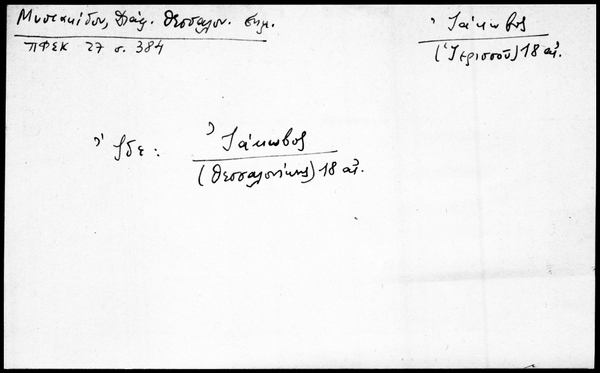 Μυστακίδου, Διάφ. Θεσσαλον. Σημ.
ΠΦΕΚ 27 σ. 384
Ἰάκωβος
(Ἱερισσοῦ) 18 αἰ.
Ἴδε: Ἰάκωβος
(Θεσσαλονίκης) 18 αἰ.